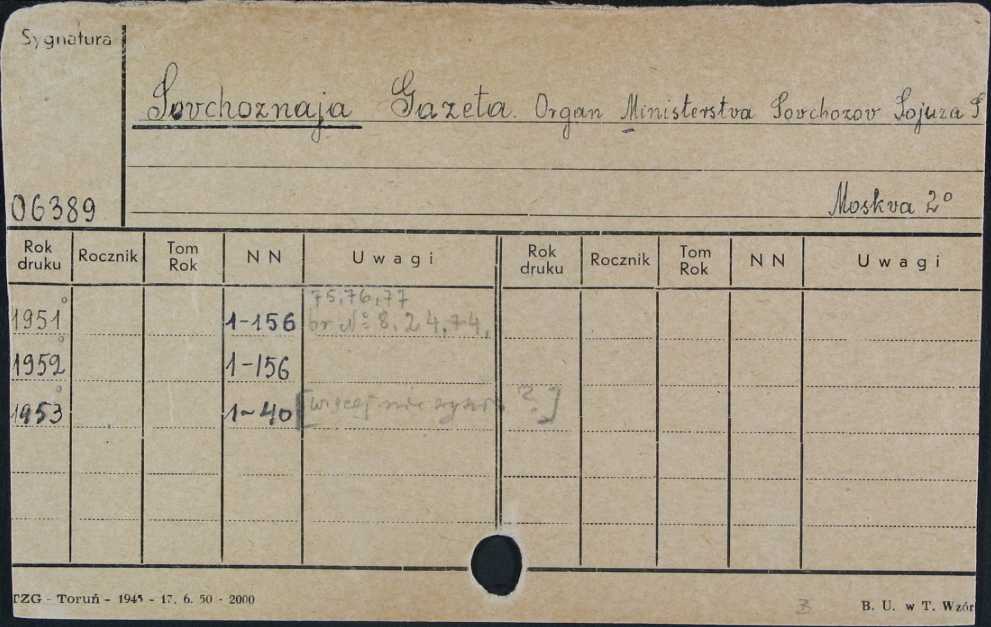 Sygnatura
Sovchoznaja Gazeta. Organ Ministerstva Sovchozov Sojuza S
06389
Moskva 2°
Rok druku Rocznik Tom Rok NN Uwagi Rok druku Rocznik Tom Rok NN Uwagi
75,76,77
1951 1-156 br №: 8, 24, 74,
1952 1-156
1953 1-40 [więcej nie ?]
TZG - Toruń - 1945 - 17. 6. 50 - 2000 3 B. U. w T. Wzór